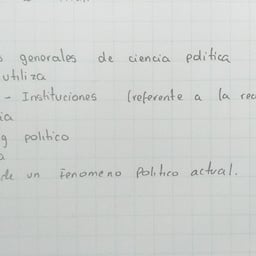 generales de ciencia politica
utiliza
- Instituciones (referente a la
politico
de un Fenomeno Politico actual.